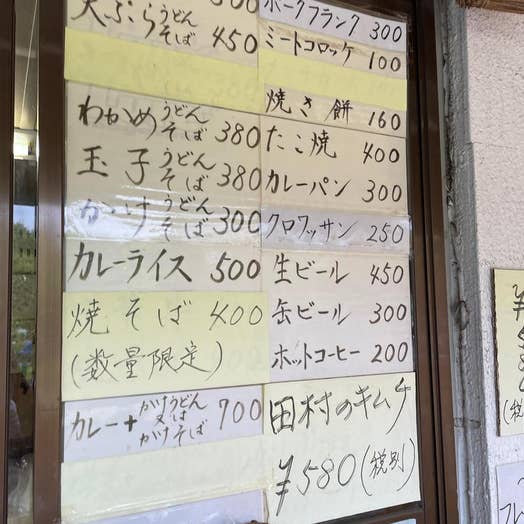 天ぷら うどん
そば 450
わかめ うどん
そば 380
玉子 うどん
そば 380
かけ うどん
そば 300
カレーライス 500
焼そば 400
(数量限定)
カレー+ かけうどん
又は
かけそば 700
ポークフランク 300
ミートコロッケ 100
焼き餅 160
たこ焼 400
カレーパン 300
クロワッサン 250
生ビール 450
缶ビール 300
ホットコーヒー 200
田村のキムチ
¥580(税別)